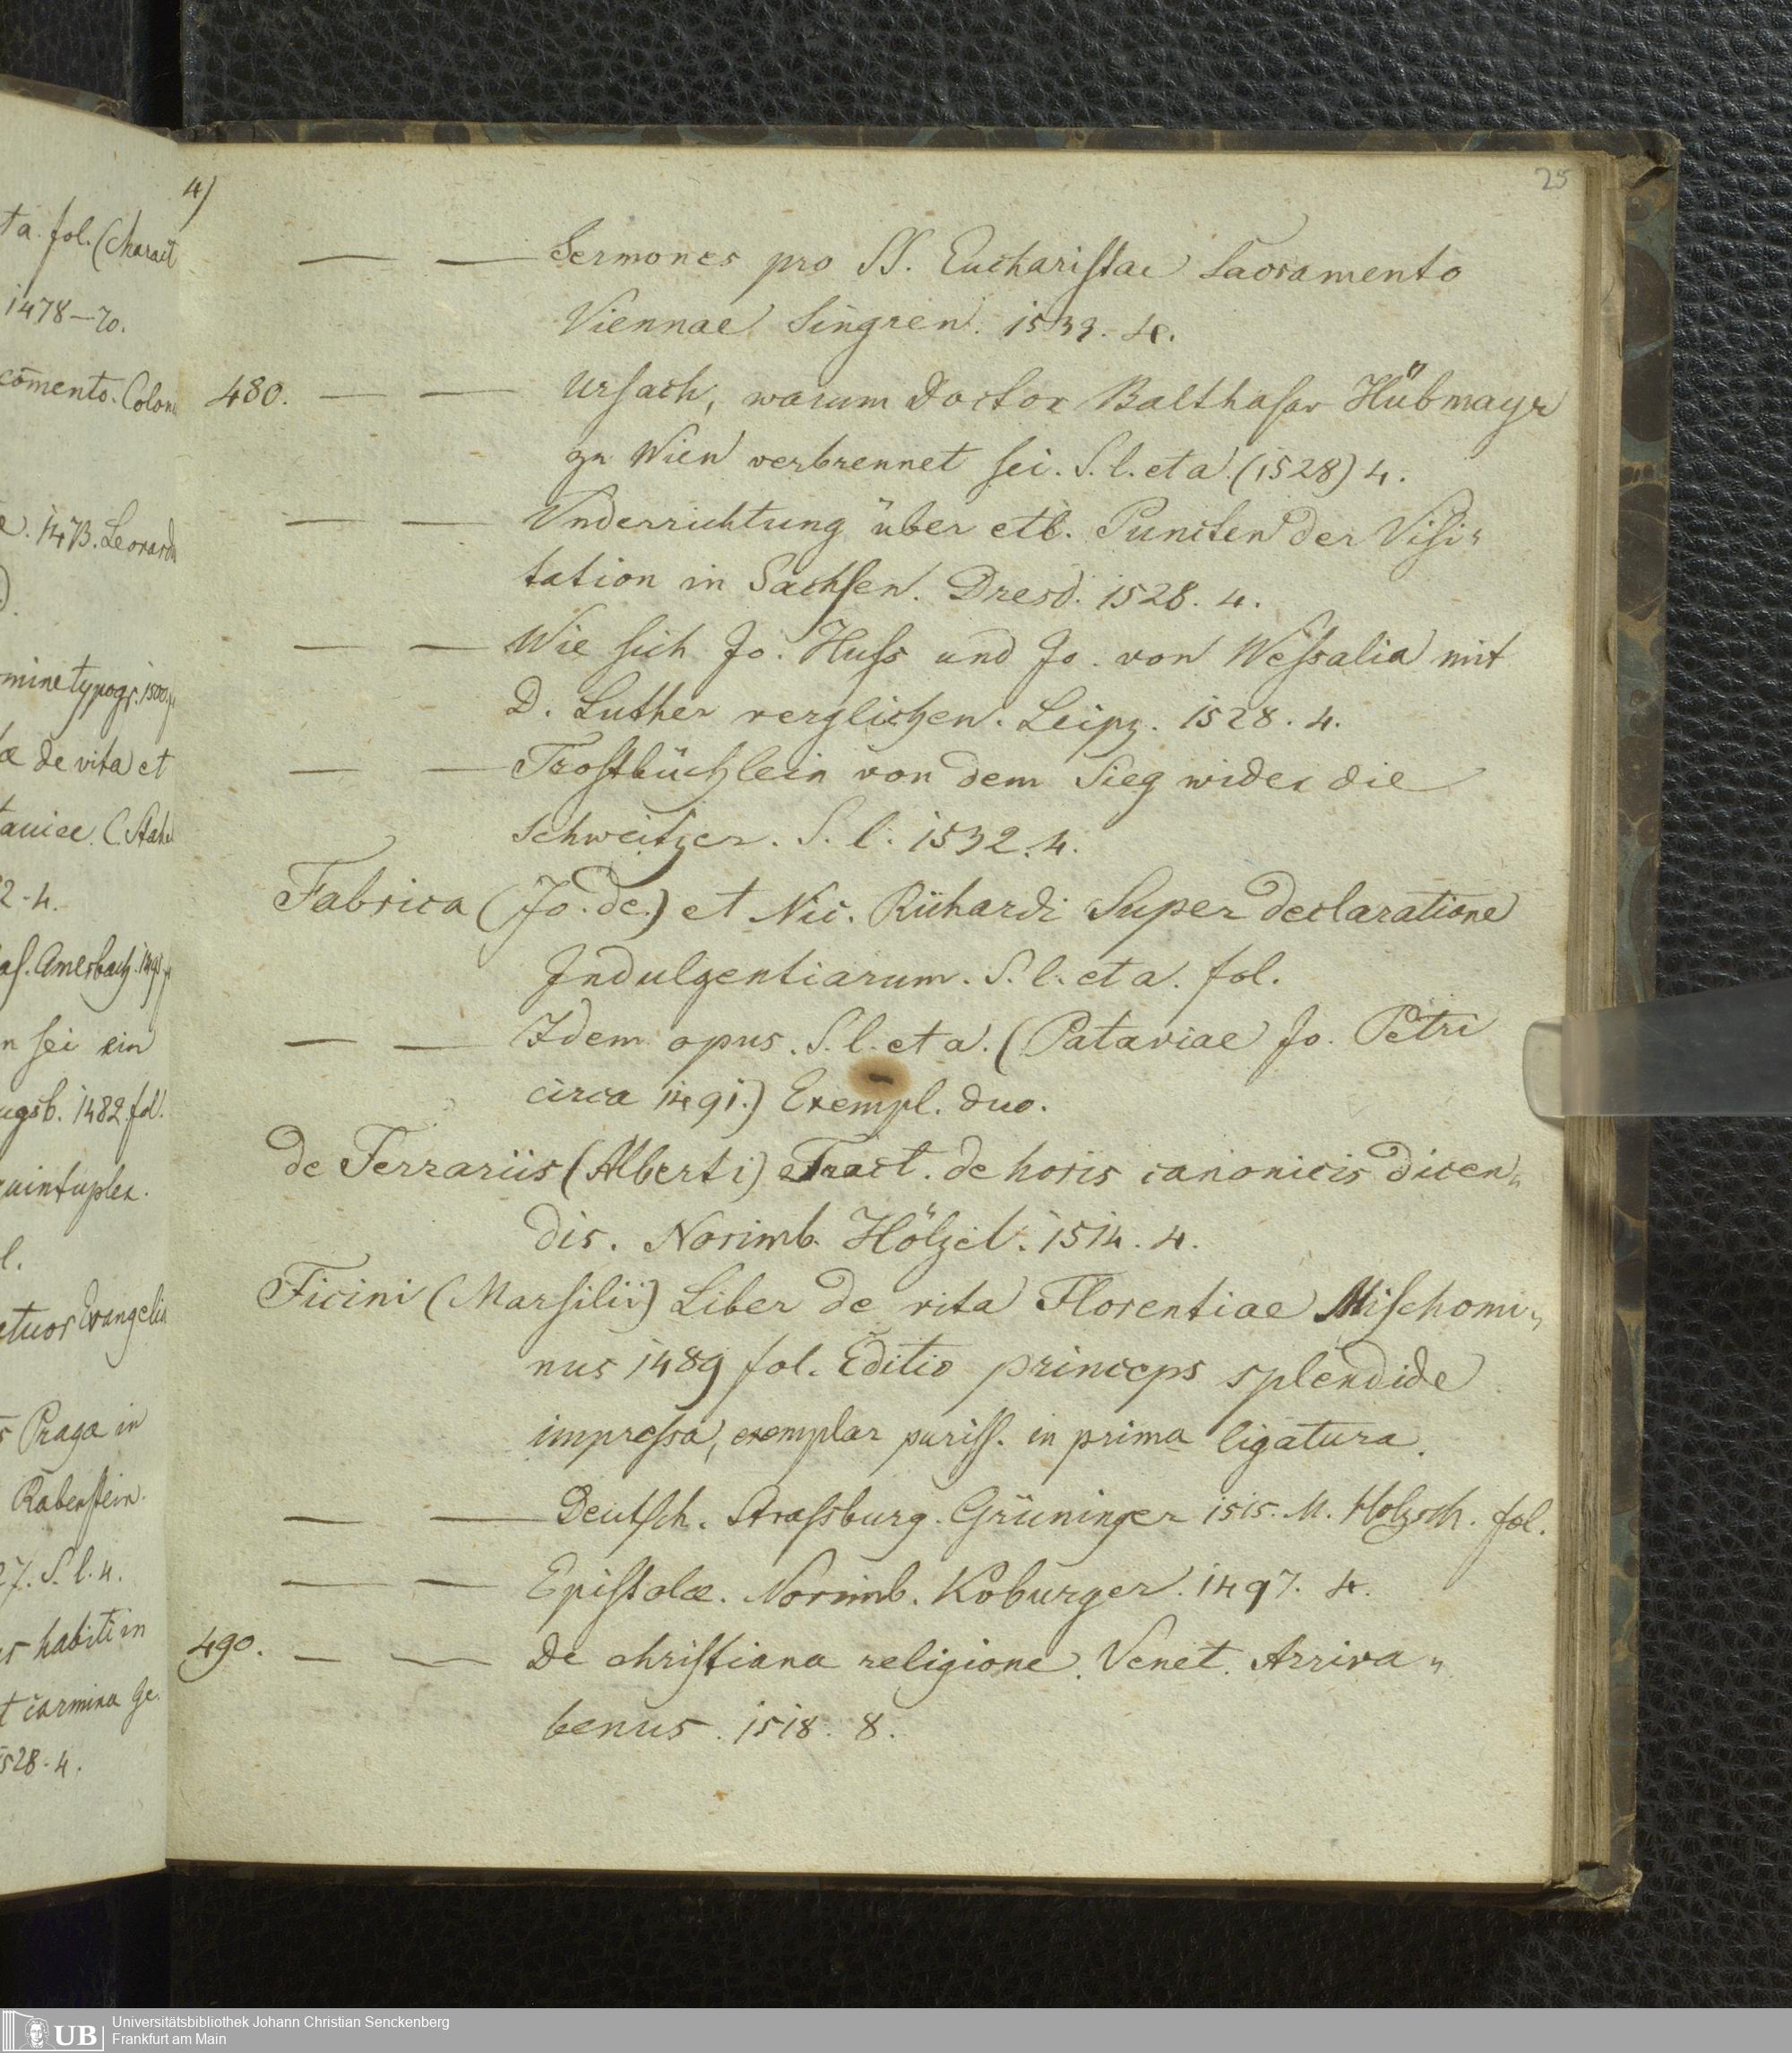 4)
25
— — Sermones pro SS. Eucharistae Sacramento
Viennae Singren. 1533. 4.
480. — — Ursach, warum Doctor Balthasar Hübmayr
zu Wien verbrennet sei. S. l. et a (1528) 4.
— — Vnderrichtung über etl. Puncten der Visi-
tation in Sachsen. Dresd. 1528. 4.
— — Wie sich Jo. Huss und Jo. von Wessalia mit
D. Luther verglichen. Leipz. 1528. 4.
— — Trostbüchlein von dem Sieg wider die
Schweitzer. S. l. 1532. 4.
Fabrica (Jo. de.) et Nic. Richardi Super declaratione
Indulgentiarum. S. l. et a. fol.
— — Idem opus. S. l. et a. (Pataviae Jo. Petri
circa 1491.) Exempl. duo.
de Ferrariis (Alberti) Tract. de horis canonicis dicen-
dis. Norimb. Hölzel. 1514. 4.
Ficini (Marsilii) Liber de vita Florentiae Mischomi-
nus 1489 fol. Editio princeps splendide
impressa, exemplar puriss. in prima ligatura.
— — Deutsch. Strassburg. Grüninger 1515. M. Holzsch. fol.
— — Epistolæ. Norimb. Koburger. 1497. 4.
490. — — De christiana religione. Venet. Arriva-
benus. 1518. 8.
ta. fol. (Charact
1478–70.
com̄ento. Colon
1473. Leonardu
mine typogr. 1500
de vita et
2. 4.
Amerbach. 149
n sei ein
ugsb. 1482. fol.
uintuplex.
l.
tuor Evangelia
Praga in
Rabenstein.
27. S. l. 4.
habiti in
t carmina Ge
528. 4.
UB
Universitätsbibliothek Johann Christian Senckenberg
Frankfurt am Main